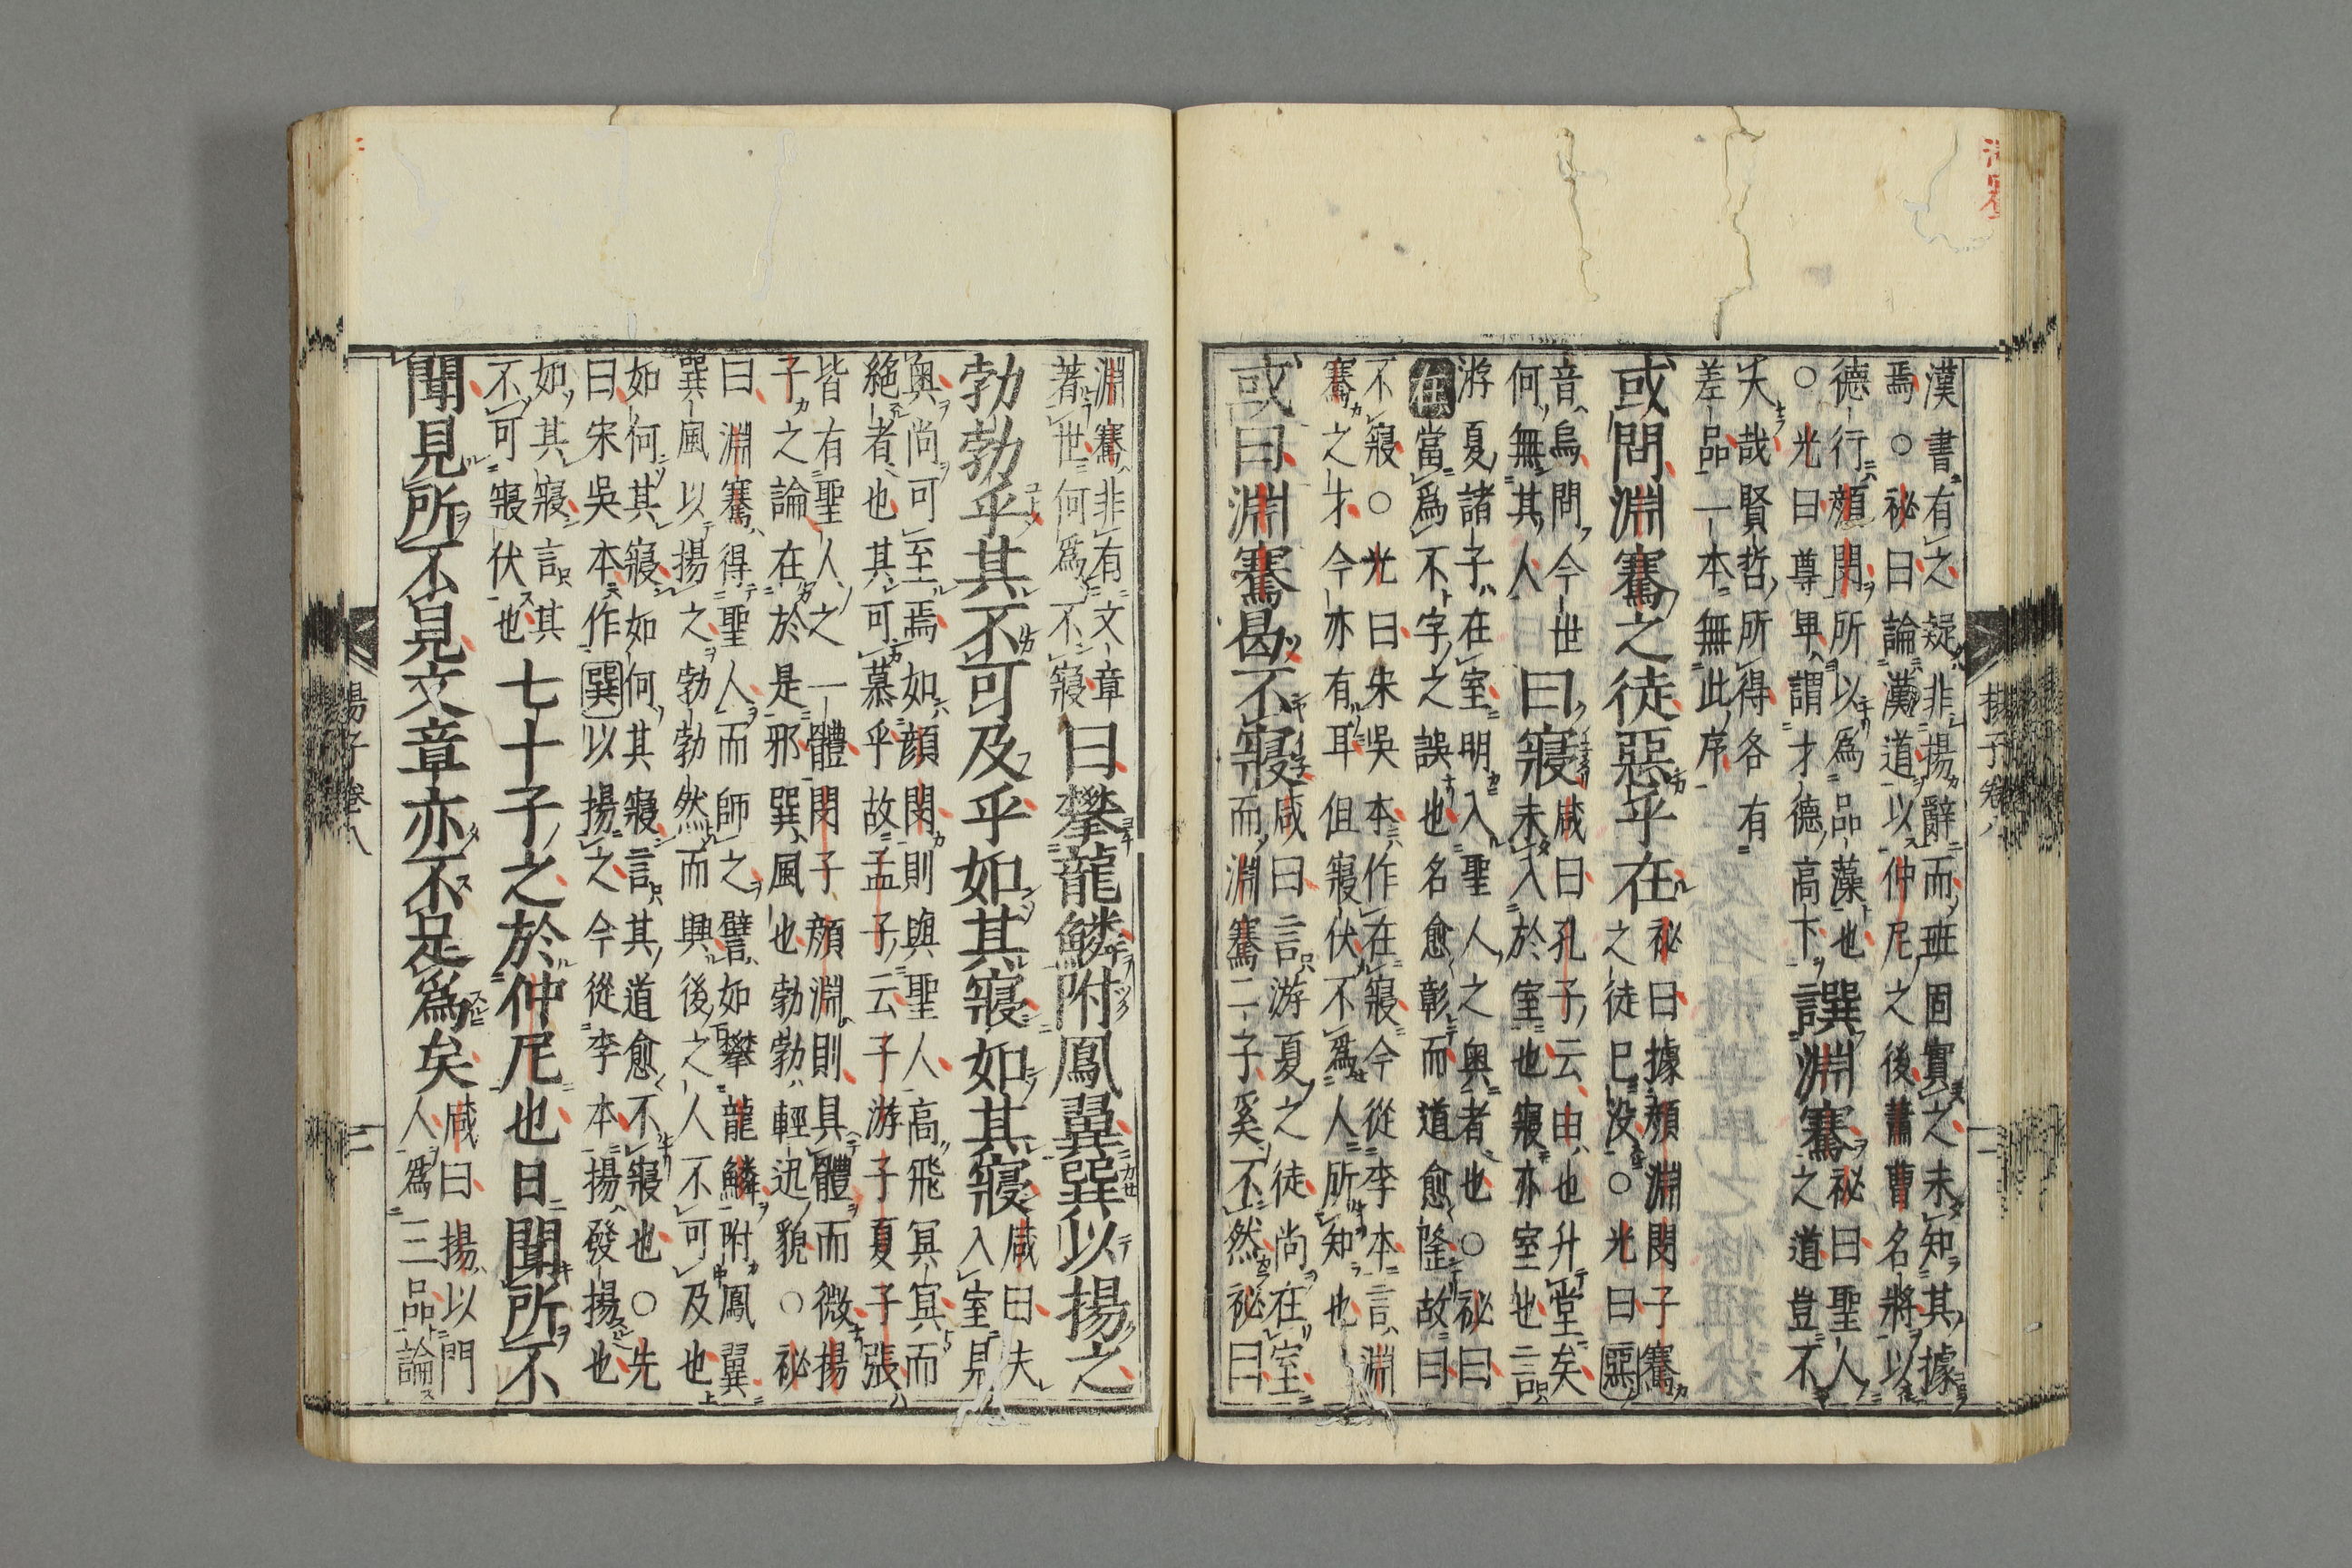 揚子卷八
漢書有之疑非揚辭而班固實之未知其據
焉○祕曰論漢道以仲尼之後蕭曹名將以
德行顔閔所以爲品藻也
○光曰尊卑謂才德高下
譔淵騫
祕曰聖人
之道豈不
大哉賢哲所得各有
差品一本無此序
或問淵騫之徒惡乎在
祕曰據顔淵閔子騫
之徒已没○光曰惡
音烏問今世
何無其人
曰寢
咸曰孔子云由也升堂矣
未入於室也寢亦室也言
游夏諸子在室明入聖人之奥者也○祕曰
在當爲不字之誤也名愈彰而道愈隆故曰
不寢○光曰朱吳本作在寢今從李本言淵
騫之才今亦有耳但寢伏不爲人所知也
或曰淵騫曷不寢
咸曰言游夏之徒尚在室
而淵騫二子奚不然祕曰
淵騫非有文章
著世何爲不寢
曰攀龍鱗附鳳翼巽以揚之
勃勃乎其不可及乎如其寢如其寢
咸曰夫
入室見
奥尚可至焉如顔閔則與聖人高飛冥冥而
絶者也其可慕乎故孟子云子游子夏子張
皆有聖人之一體閔子顔淵則具體而微揚
子之論在於是邪巽風也勃勃輕迅貌○祕
曰淵騫得聖人而師之譬如攀龍鱗附鳳翼
巽風以揚之勃勃然而興後之人不可及也
如何其寢如何其寢言其道愈不寢也○先
曰宋吳本作巽以揚之今從李本揚發揚也
如其寢言其
不可寢伏也
七十子之於仲尼也日聞所不
聞見所不見文章亦不足爲矣
咸曰揚以門
人爲三品論
揚子卷八
二